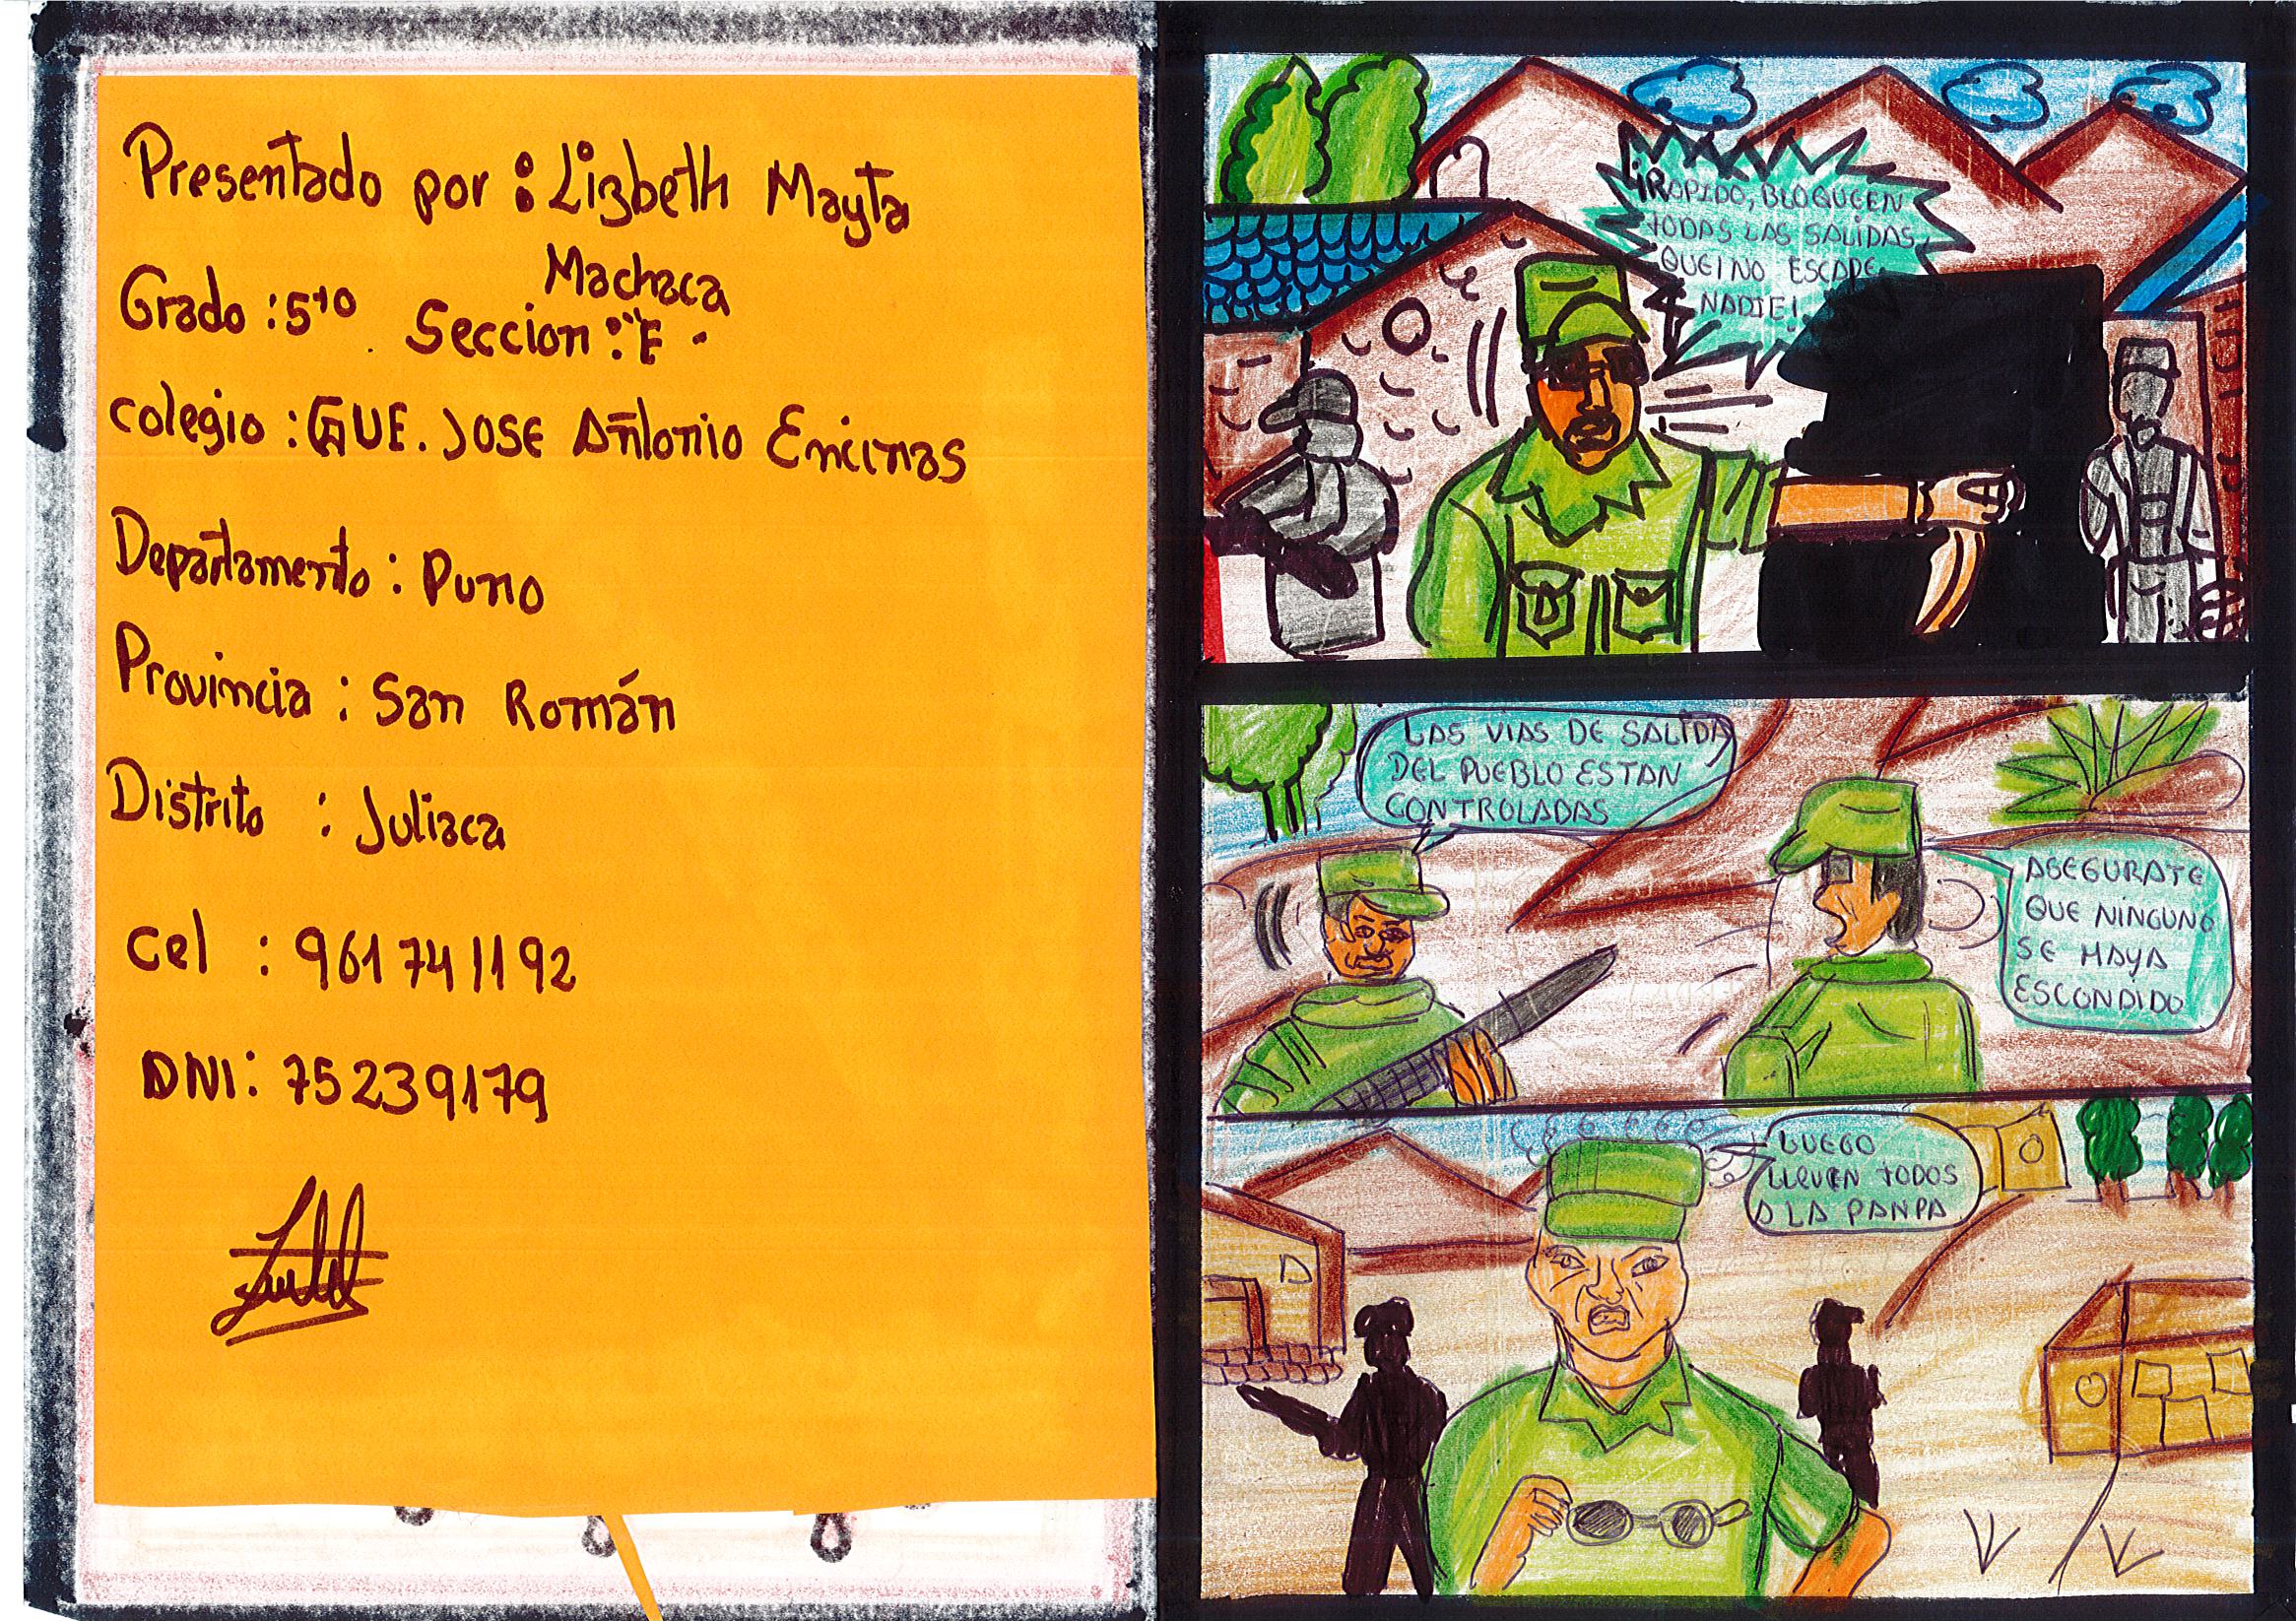 Presentado por : Lizbeth Mayta
Machaca
Grado : 5to Seccion : "E"
Colegio : GUE. JOSE Antonio Encinas
Departamento : Puno
Provincia : San Román
Distrito : Juliaca
Cel : 961741192
DNI: 75239179
¡RAPIDO, BLOQUEEN
TODAS LAS SALIDAS,
QUE! NO ESCAPE
NADIE!
LAS VÍAS DE SALIDA
DEL PUEBLO ESTAN
CONTROLADAS
ASEGURATE
QUE NINGUNO
SE HAYA
ESCONDIDO
LUEGO
LLEVEN TODOS
A LA PANPA